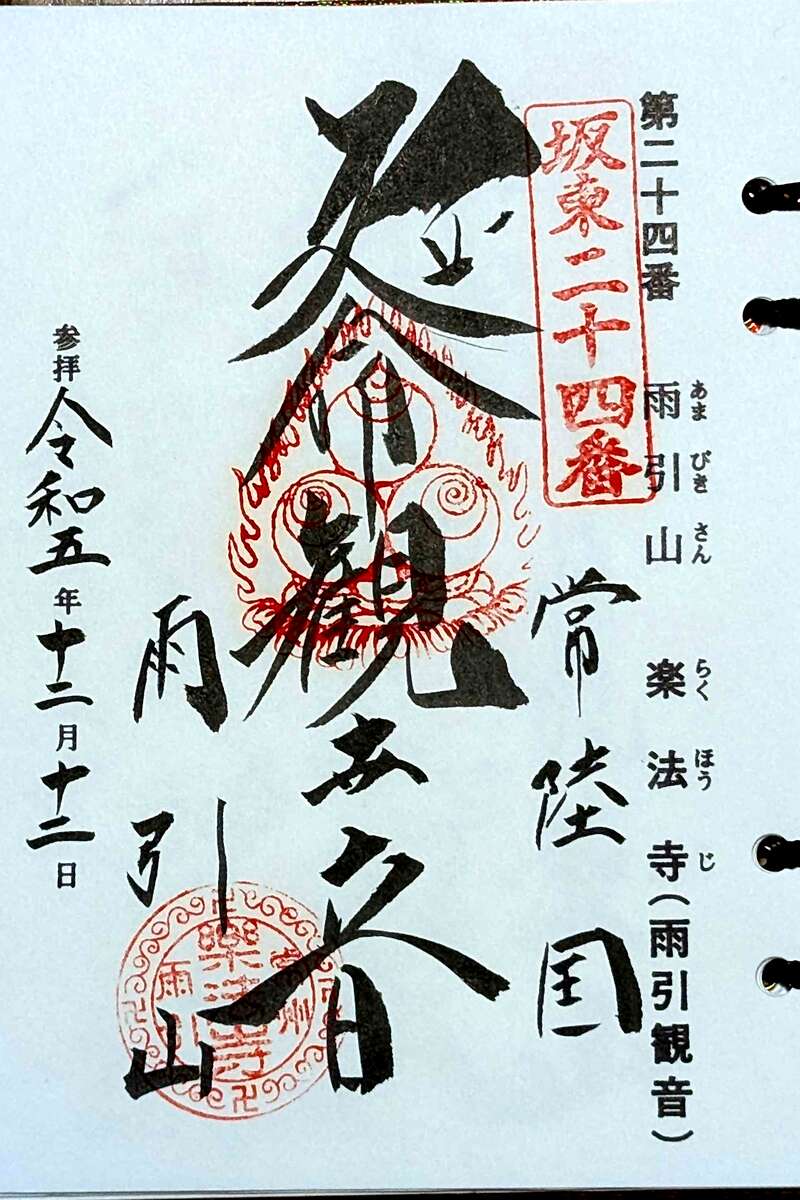 第二十四番 雨引山 楽法寺(雨引観音)
あま びき さん らく ほう じ
坂東二十四番
常陸国
延命観世音
雨引山
樂法寺
雨引
参拝 令和五年十二月十二日